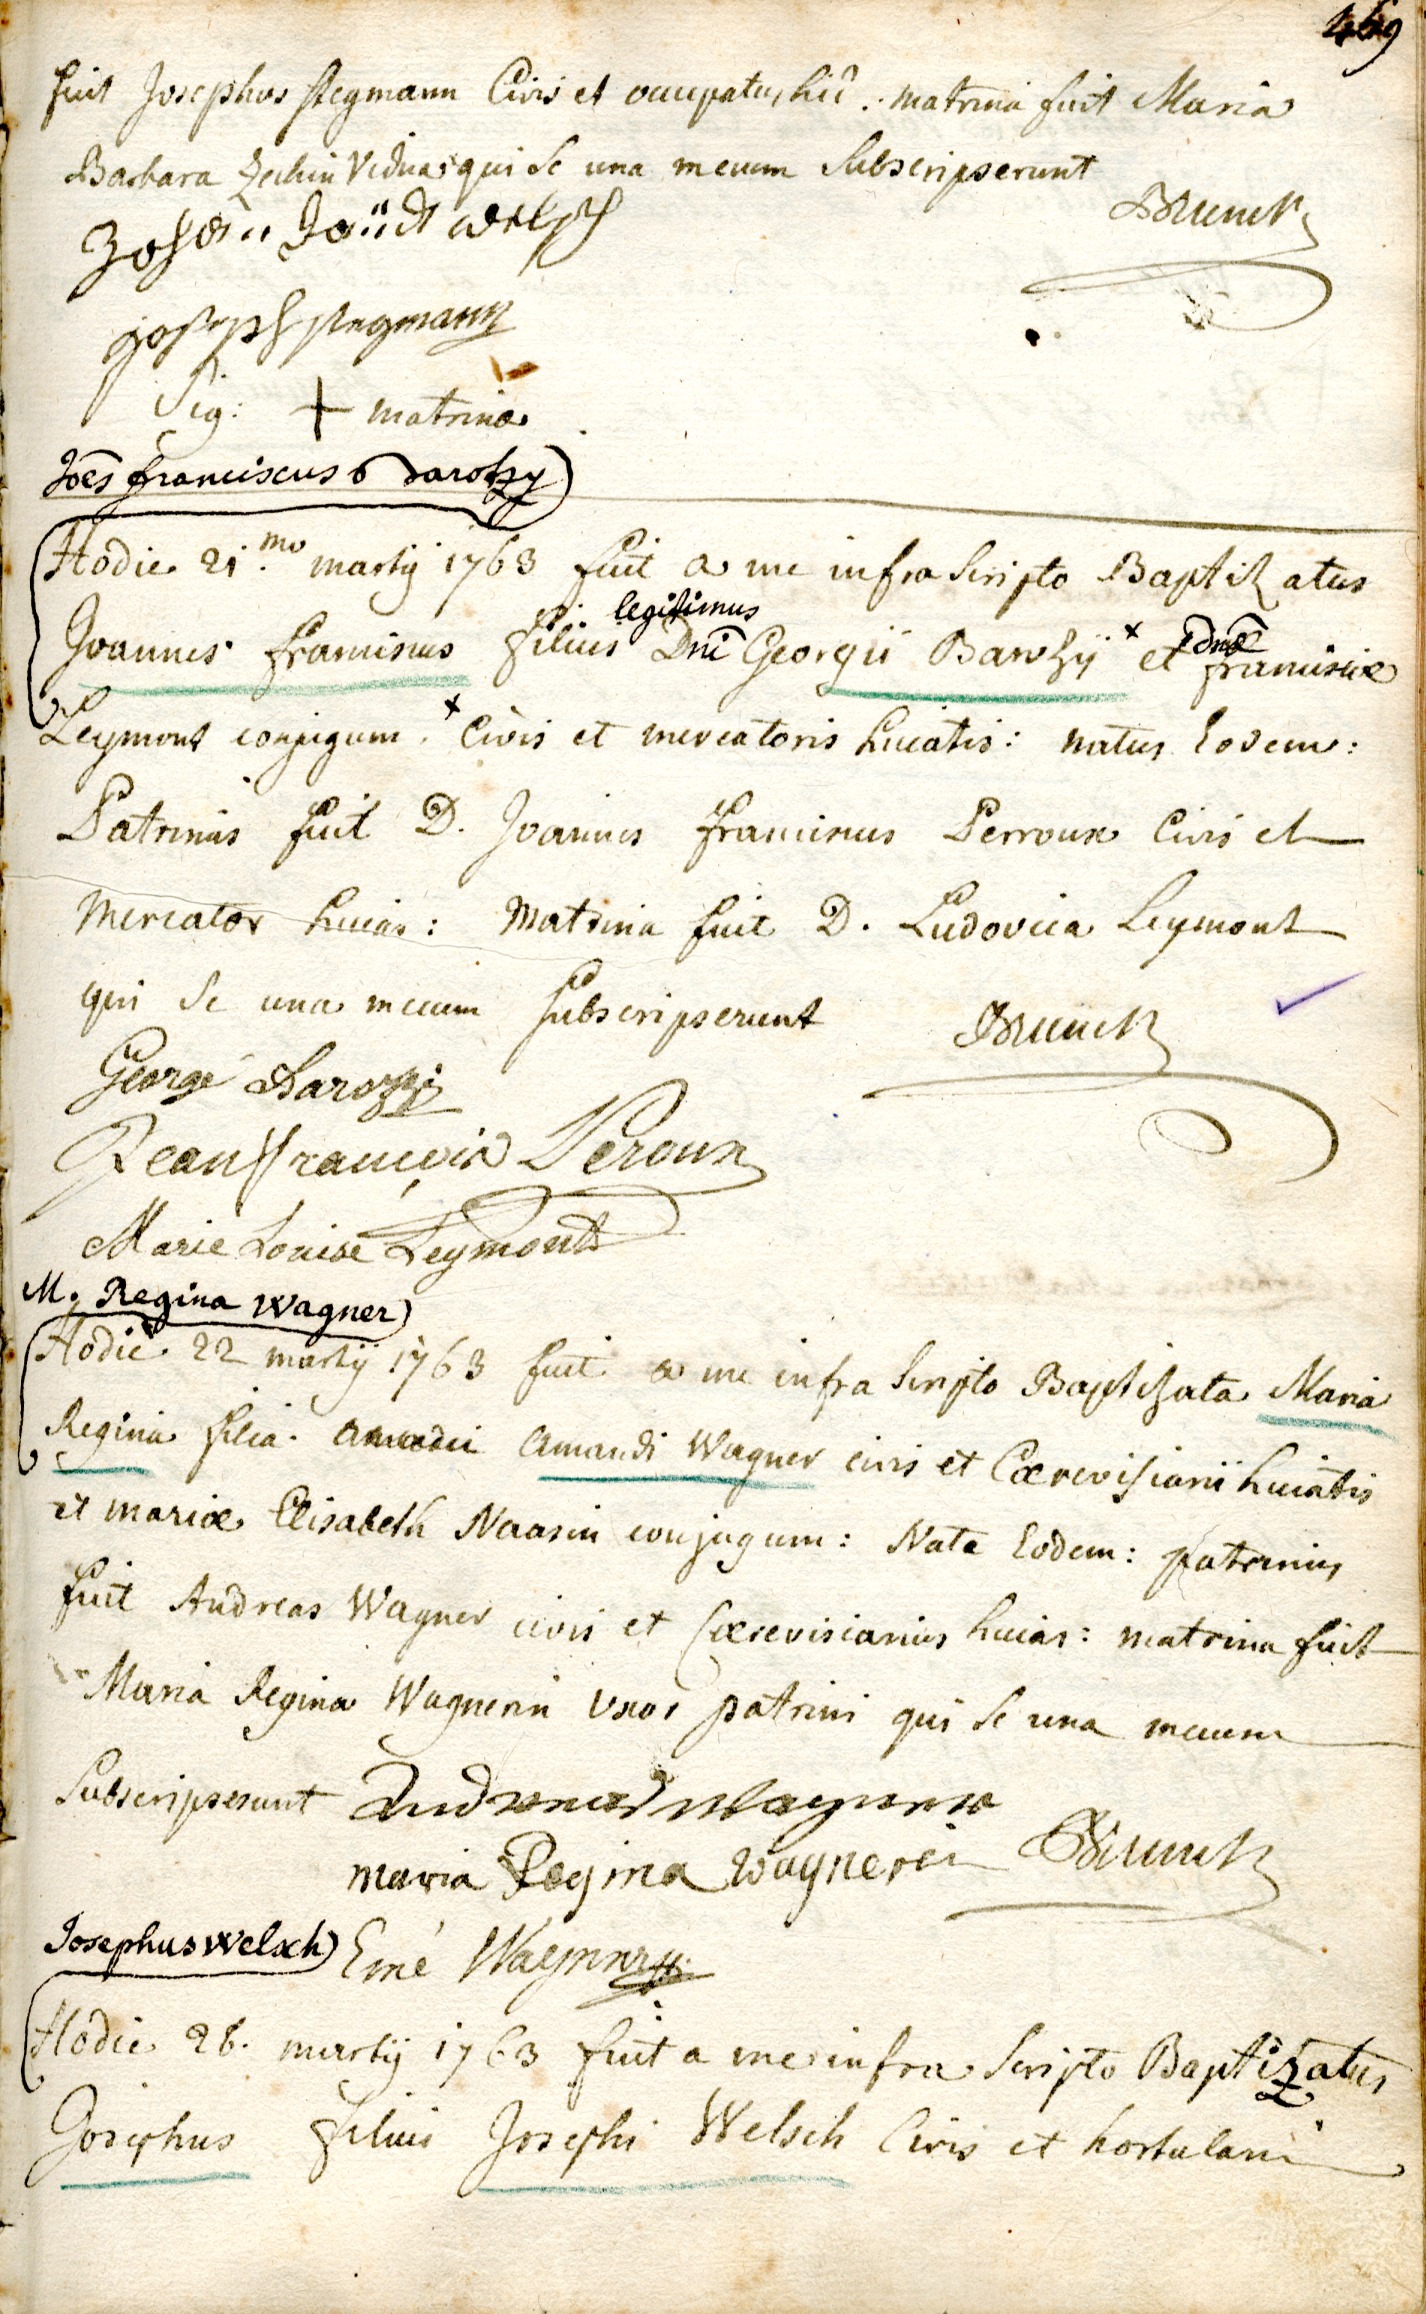 469
fuit Josephus Stegmann Civis et occupatus hic: matrina fuit Maria
Barbara Zechin Vidua: qui se una mecum subscripserunt
Brunck
Joseph Stegmann
Sig: + matrinæ
Joes franciscus Barozzy)
Hodie 21.mo martij 1763 fuit a me infra scripto Baptizatus
Joannes franciscus filius legitimus Dni Georgii Barozÿ x et dnæ franciscæ
Leymont conjugum. x Civis et mercatoris huiatis: natus Eodem:
Patrinus fuit D. Joannes franciscus Perroux Civis et
Mercator huias: Matrina fuit D. Ludovica Leymont
qui se una mecum subscripserunt Brunck
George Barozzi
Jean françois Peroux
Marie Louise Leymont
M. Regina Wagner)
Hodie 22 martij 1763 fuit a me infra scripto Baptizata Maria
Regina filia Amandi Wagner civis et Cærevisiarii huiatis
et mariæ Elisabeth Naasin conjugum: Nata Eodem: patrinus
fuit Andreas Wagner civis et Cærevisiarius huias: matrina fuit
Maria Regina Wagnerin uxor patrini qui se una mecum
Subscripserunt Andreas Wagner
maria Regina Wagnerin Brunck
Josephus Welsch) Emé Wagner
Hodie 26. martij 1763 fuit a me infra scripto Baptizatus
Josephus filius Josephi Welsch Civis et hortulani